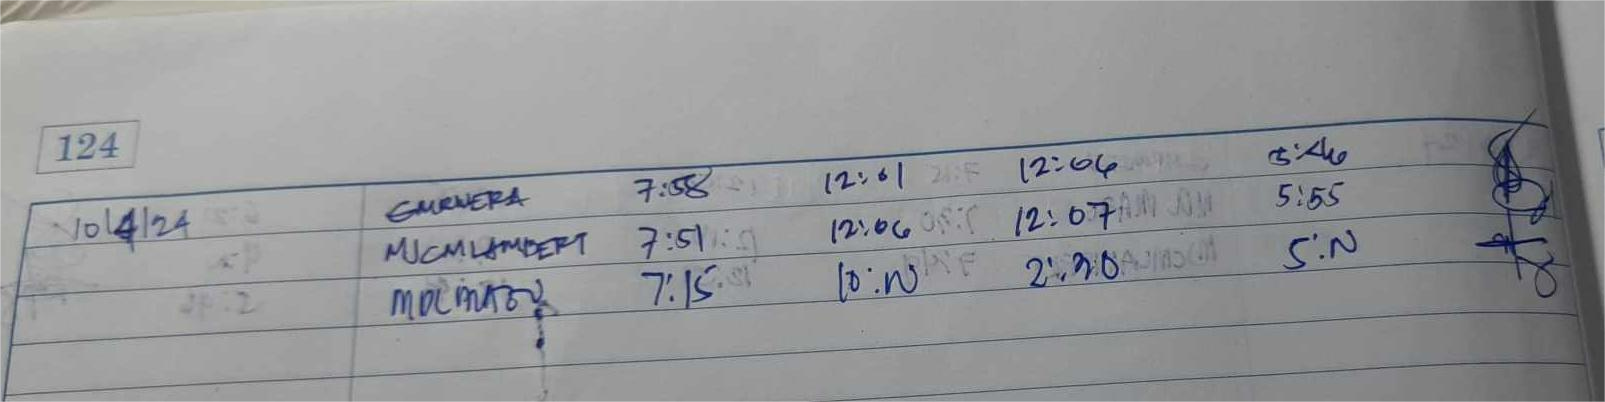 124
10/4/24 GMRNERA 7:58 12:01 12:06 5:46
MJCMLAMBERT 7:51 12:06 12:07 5:55
7:15 10:N 2:20 5:N